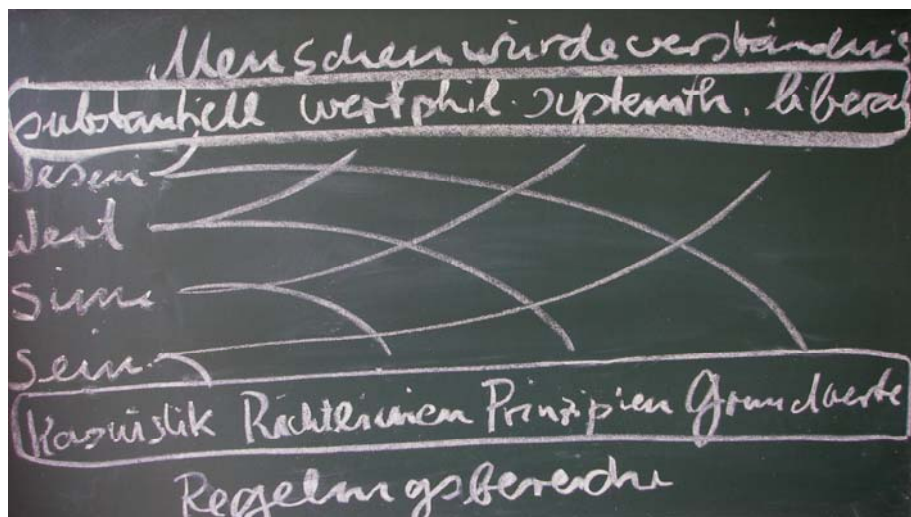 Menschenwürdeverständnis
substantiell wertphil. systemth. liberal
Wesen
Wert
Sinn
Sein
Kasuistik Richtlinien Prinzipien Grundwerte
Regelungsbereiche